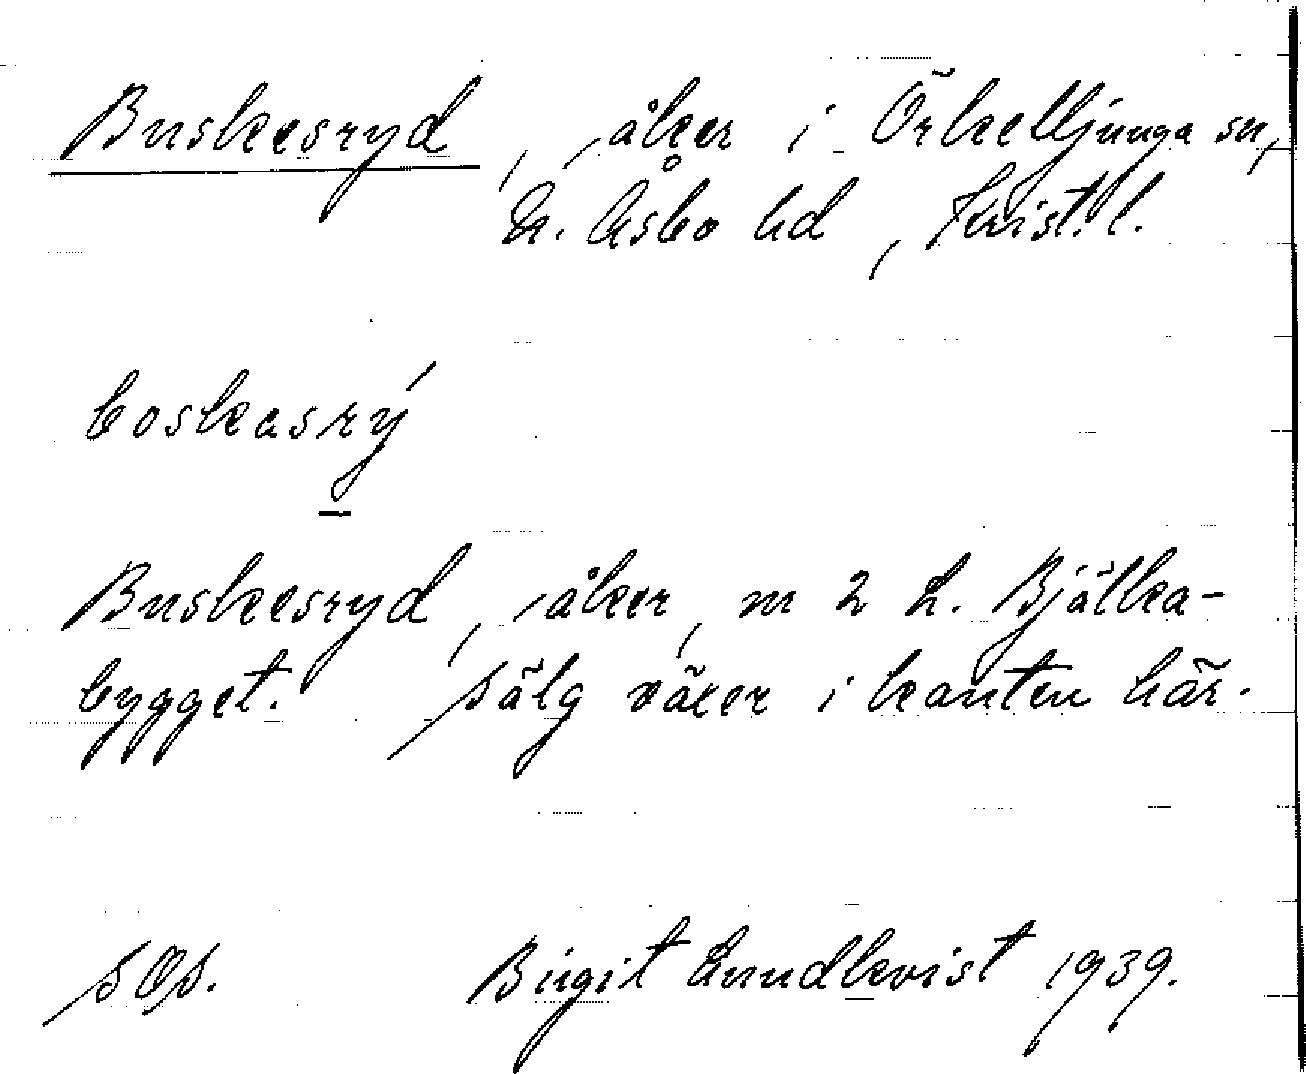 Buskesryd, åker i Örkelljunga sn,
N. Åsbo hd, Krist. l.
boskasrý
Buskesryd, åker, m 2 L. Bjälka-
bygget. Sälg växer i kanten här.
SOS. Birgit Lundkvist 1939.